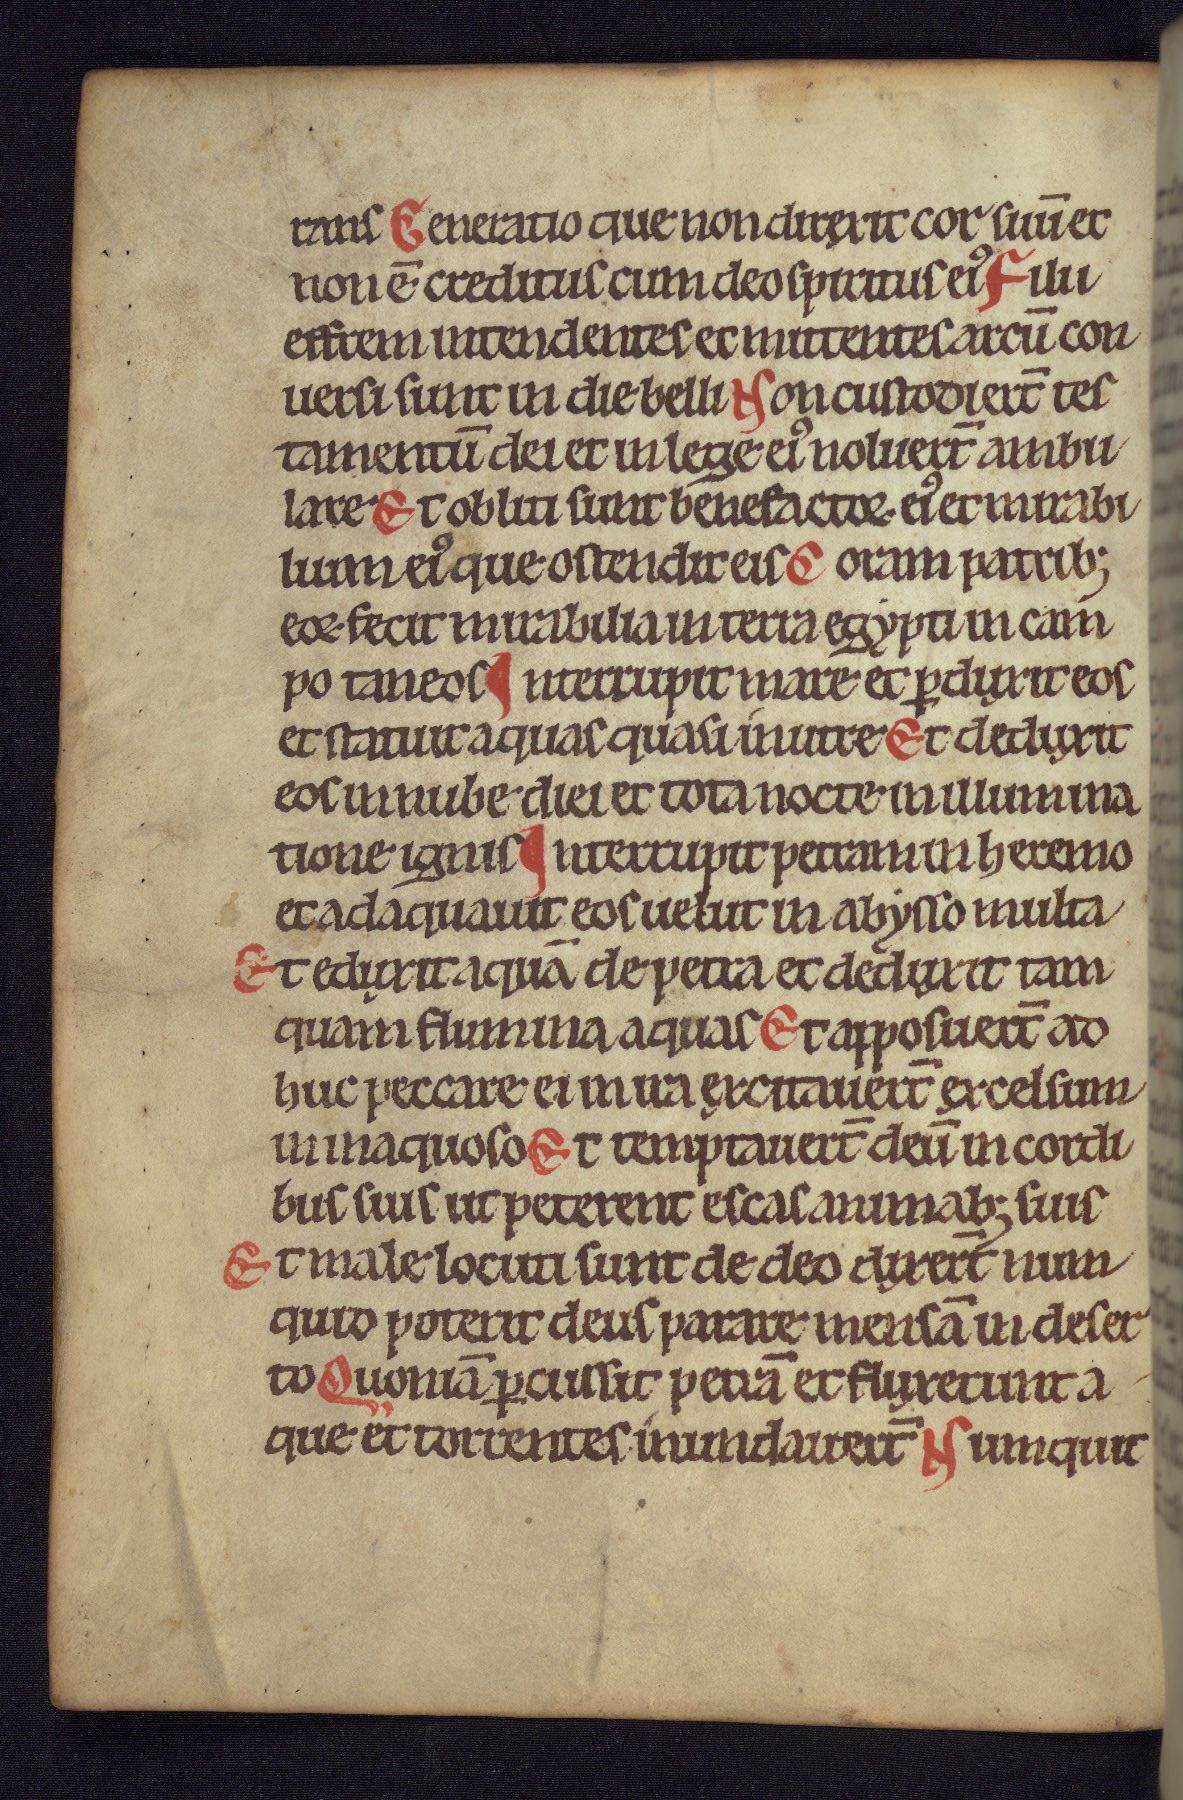 rans Generatio que non direxit cor suū et
non ē creditus cum deo spiritus eiꝰ Filii
effrem intendentes et mittentes arcū con
uersi sunt in die belli Non custodiert̄ tes
tamentū dei et in lege eiꝰ noluert̄ ambu
lare Et obliti sunt benefactoꝝ eiꝰ et mirabi
lium eiꝰ que ostendit eis Coram patrib;
eoꝝ fecit mirabilia in terra egypti in cam
po taneos Interrupit mare et ꝑduxit eos
et statuit aquas quasi in utre Et deduxit
eos in nube diei et tota nocte in illumina
tione ignis Interrupit petram in heremo
et adaquauit eos uelut in abysso multa
Et eduxit aquā de petra et deduxit tam
quam flumina aquas Et apposuert̄ ad
huc peccare ei in ira excitauert̄ excelsum
in inaquoso Et temptauert̄ deū in cordi
bus suis ut peterent escas animab; suis
Et male locuti sunt de deo dixert̄ num
quid poterit deus parare mensā in deser
to Quoniā ꝑcussit petrā et fluxerunt a
que et torrentes inundauert̄ Numquit